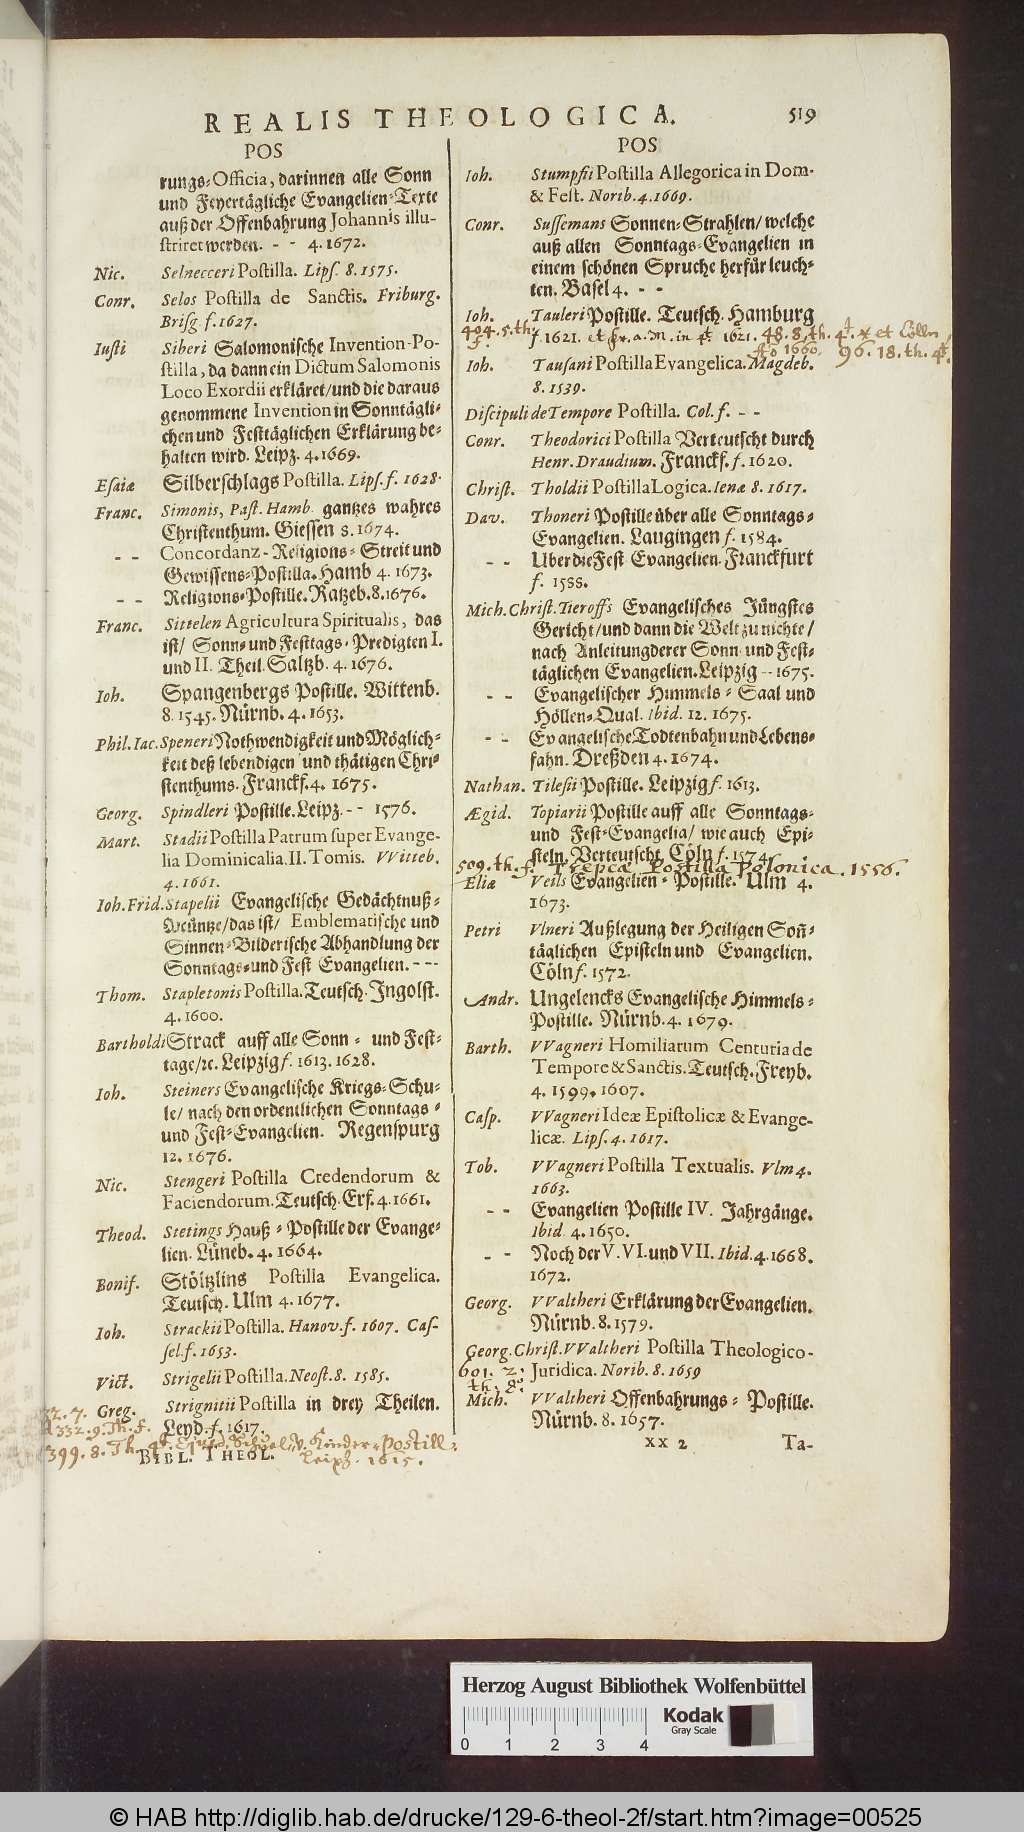 REALIS THEOLOGICA. 519
POS
rungs-Officia, darinnen alle Sonn
und Feyertägliche Evangelien-Texte
auß der Offenbahrung Johannis illu-
striret werden. - - 4. 1672.
Nic. Selnecceri Postilla. Lips. 8. 1575.
Conr. Selos Postilla de Sanctis. Friburg.
Brisg. f. 1627.
Iusti Siberi Salomonische Invention-Po-
stilla, da dann ein Dictum Salomonis
Loco Exordii erkläret/ und die daraus
genommene Invention in Sonntägli-
chen und Festtäglichen Erklärung be-
halten wird. Leipz. 4. 1669.
Esaiæ Silberschlags Postilla. Lips. f. 1628.
Franc. Simonis, Past. Hamb. gantzes wahres
Christenthum. Giessen 8. 1674.
- - Concordanz-Religions-Streit und
Gewissens-Postilla. Hamb 4. 1673.
- - Religions-Postille. Ratzeb. 8. 1676.
Franc. Sittelen Agricultura Spiritualis, das
ist/ Sonn- und Festtags-Predigten I.
und II. Theil. Saltzb. 4. 1676.
Ioh. Spangenbergs Postille. Wittenb.
8. 1545. Nürnb. 4. 1653.
Phil. Iac. Speneri Nothwendigkeit und Möglich-
keit deß lebendigen und thätigen Chri-
stenthums. Franckf. 4. 1675.
Georg. Spindleri Postille. Leipz. - - 1576.
Mart. Stadii Postilla Patrum super Evange-
lia Dominicalia. II. Tomis. VVitteb.
4. 1661.
Ioh. Frid. Stapelii Evangelische Gedächtnuß-
Meüntze/ das ist/ Emblematische und
Sinnen-Bilderische Abhandlung der
Sonntags- und Fest Evangelien. - - -
Thom. Stapletonis Postilla. Teutsch. Ingolst.
4. 1600.
Bartholdi Strack auff alle Sonn- und Fest-
tage/ ꝛc. Leipzig f. 1613. 1628.
Ioh. Steiners Evangelische Kriegs-Schu-
le/ nach den ordentlichen Sonntags-
und Fest-Evangelien. Regenspurg
12. 1676.
Nic. Stengeri Postilla Credendorum &
Faciendorum. Teutsch. Erf. 4. 1661.
Theod. Stetings Hauß-Postille der Evange-
lien. Lüneb. 4. 1664.
Bonif. Stöltzlins Postilla Evangelica.
Teutsch. Ulm 4. 1677.
Ioh. Strackii Postilla. Hanov. f. 1607. Cas-
sel. f. 1653.
Vict. Strigelii Postilla. Neost. 8. 1585.
Greg. Strignitii Postilla in drey Theilen.
Leyd. f. 1617.
332. 9. Th. f.
399. 8. Th. 4t. Kinder-Postill.
Leipz. 1615.
BIBL. THEOL.
POS
Ioh. Stumpfii Postilla Allegorica in Dom.
& Fest. Norib. 4. 1669.
Conr. Sussemans Sonnen-Strahlen/ welche
auß allen Sonntags-Evangelien in
einem schönen Spruche herfür leuch-
ten. Basel 4. - -
Ioh. Tauleri Postille. Teutsch. Hamburg
404. 5. th. f.
f. 1621. et fr. a. M. in 4t 1621. 48. 8. th. 4t. et Cölln
Ao 1660. 96. 18. th. 4t.
Ioh. Tausani Postilla Evangelica. Magdeb.
8. 1539.
Discipuli de Tempore Postilla. Col. f. - -
Conr. Theodorici Postilla Verteutscht durch
Henr. Draudium. Franckf. f. 1620.
Christ. Tholdii Postilla Logica. Ienæ 8. 1617.
Dav. Thoneri Postille über alle Sonntags-
Evangelien. Laugingen f. 1584.
- - Uber die Fest Evangelien. Franckfurt
f. 1588.
Mich. Christ. Tieroffs Evangelisches Jüngstes
Gericht/ und dann die Welt zu nichte/
nach Anleitung derer Sonn- und Fest-
täglichen Evangelien. Leipzig - - 1675.
- - Evangelischer Himmels-Saal und
Höllen-Qual. Ibid. 12. 1675.
- - Evangelische Todtenbahn und Lebens-
fahn. Dreßden 4. 1674.
Nathan. Tilesii Postille. Leipzig f. 1613.
Ægid. Topiarii Postille auff alle Sonntags-
und Fest-Evangelia/ wie auch Epi-
steln. Verteutscht. Cöln f. 1574.
509. th. f. Trepcæ Postilla Polonica. 1556.
Eliæ Veils Evangelien-Postille. Ulm 4.
1673.
Petri Vlneri Außlegung der Heiligen Soñ-
täglichen Episteln und Evangelien.
Cöln f. 1572.
Andr. Ungelencks Evangelische Himmels-
Postille. Nürnb. 4. 1679.
Barth. VVagneri Homiliarum Centuria de
Tempore & Sanctis. Teutsch. Freyb.
4. 1599. 1607.
Casp. VVagneri Ideæ Epistolicæ & Evange-
licæ. Lips. 4. 1617.
Tob. VVagneri Postilla Textualis. Vlm 4.
1663.
- - Evangelien Postille IV. Jahrgänge.
Ibid. 4. 1650.
- - Noch der V. VI. und VII. Ibid. 4. 1668.
1672.
Georg. VValtheri Erklärung der Evangelien.
Nürnb. 8. 1579.
Georg. Christ. VValtheri Postilla Theologico-
601. 2. th. 8o.
Juridica. Norib. 8. 1659
Mich. VValtheri Offenbahrungs-Postille.
Nürnb. 8. 1657.
xx 2 Ta-
Herzog August Bibliothek Wolfenbüttel
0 1 2 3 4
Kodak
Gray Scale
© HAB http://diglib.hab.de/drucke/129-6-theol-2f/start.htm?image=00525